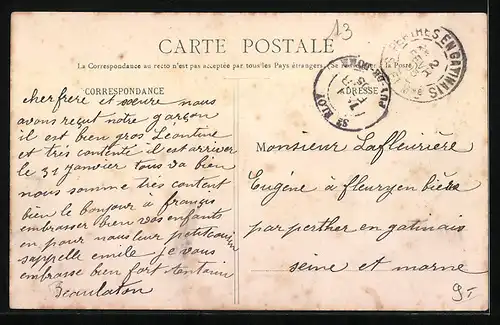 13
CARTE POSTALE
La Correspondance au recto n'est pas acceptée par tous les Pays étrangers. (Se la Poste
CORRESPONDANCE
ADRESSE
PERTHES EN GATINAIS
PUY-DE-DOME
St ELOY
cher frere et soeure nous
avons reçut notre garçon
il est bien gros Léontine
et trés contente il est arriver
le 31 janvier tous va bien
nous somme trés content
bien le bonjour a françis
embrasser bien vos enfants
en pour nous leur petit cousin
sappelle emile je vous
embrasse bien fort
Beaulaton
Monsieur Lafleurière
Eugéne à fleury en bière
par perther en gatinais
seine et marne
9-